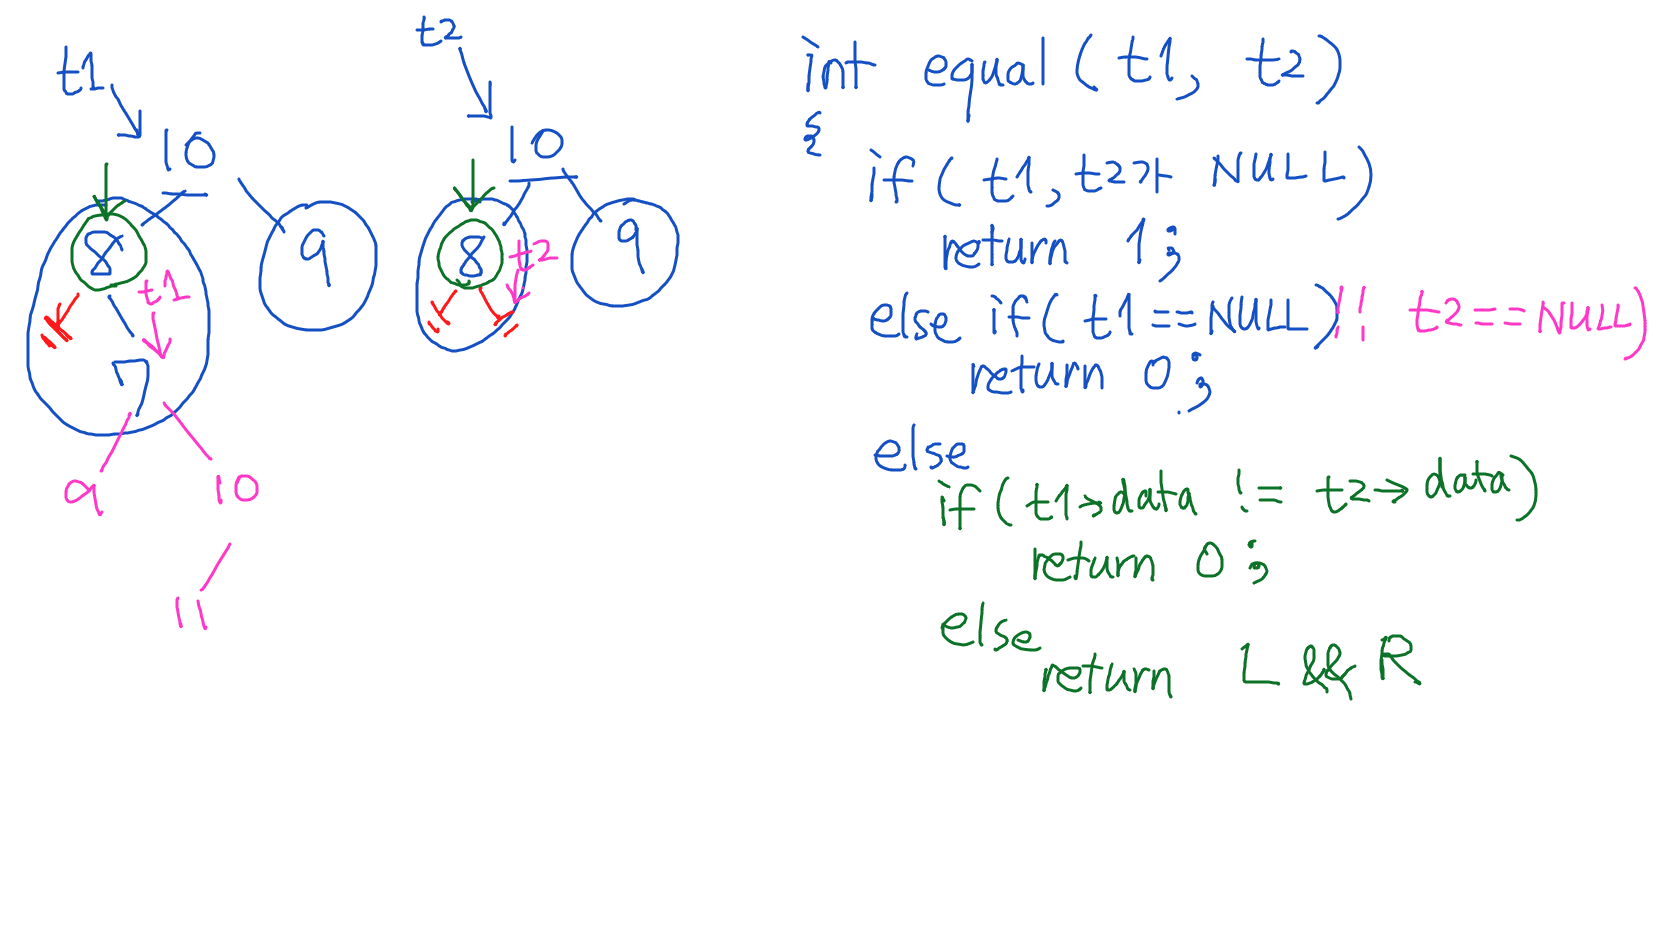 t1
t2
10
10
8
9
8
9
t1
t2
7
9
10
11
int equal (t1, t2)
{
if (t1, t2가 NULL)
return 1;
else if( t1==NULL)!! t2==NULL)
return 0;
else
if (t1→data != t2→data)
return 0;
else
return L && R